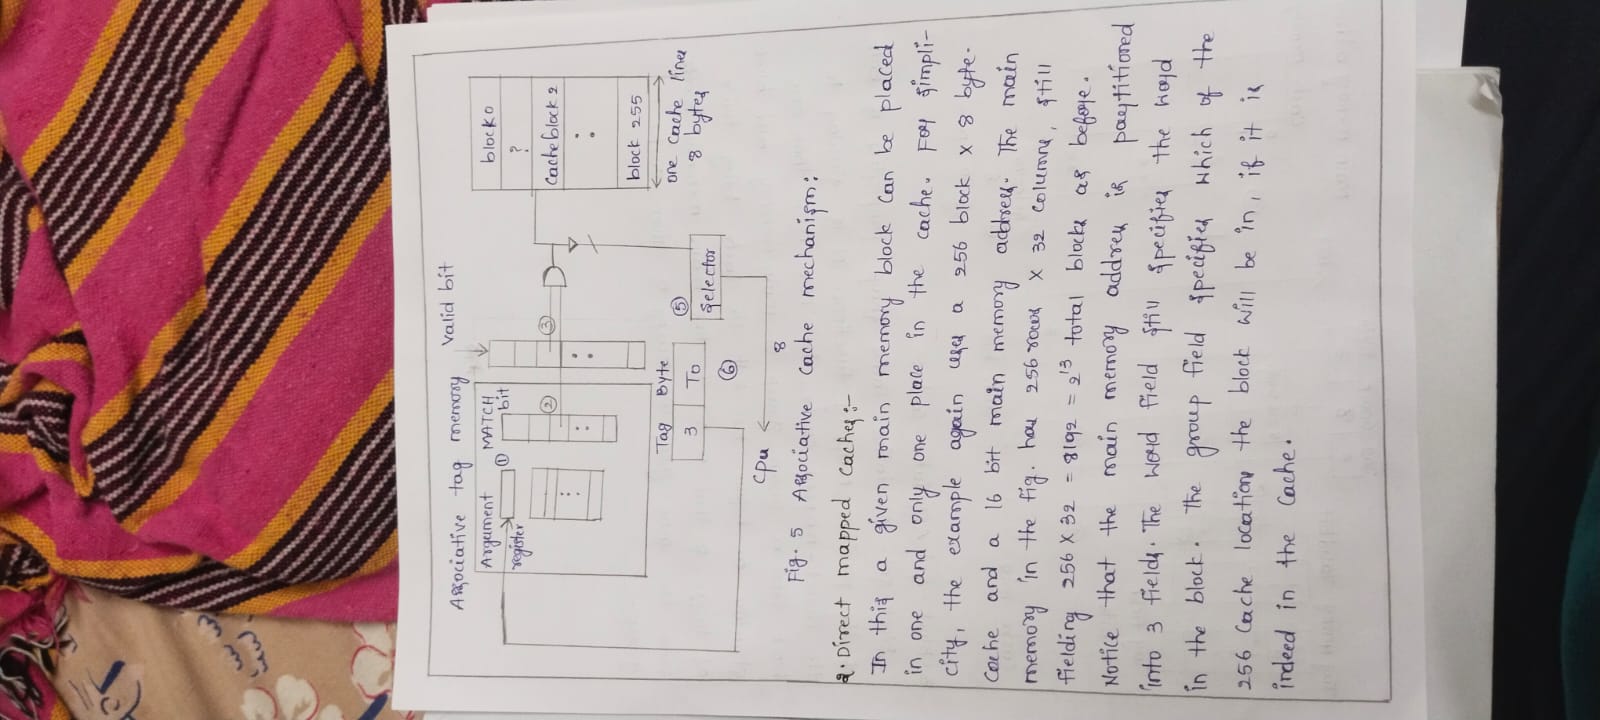 Associative tag memory
Valid bit
Argument
register
①
MATCH
bit
②
③
block 0
?
Cache block 2
block 255
one cache lines
8 bytes
Tag Byte
3 To
⑤
Selector
⑥
CPU
8
Fig. 5 Associative Cache mechanism:
2. Direct mapped Caches:-
In this a given main memory block can be placed
in one and only one place in the cache. For simpli-
city, the example again uses a 256 block x 8 byte.
Cache and a 16 bit main memory address. The main
memory in the fig. has 256 rows x 32 columns, still
fielding 256 x 32 = 8192 = 2¹³ total blocks as before.
Notice that the main memory addres is partitioned
into 3 fields. The word field still specifies the word
in the block. The group field specifies which of the
256 Cache locations the block will be in, if it is
indeed in the Cache.